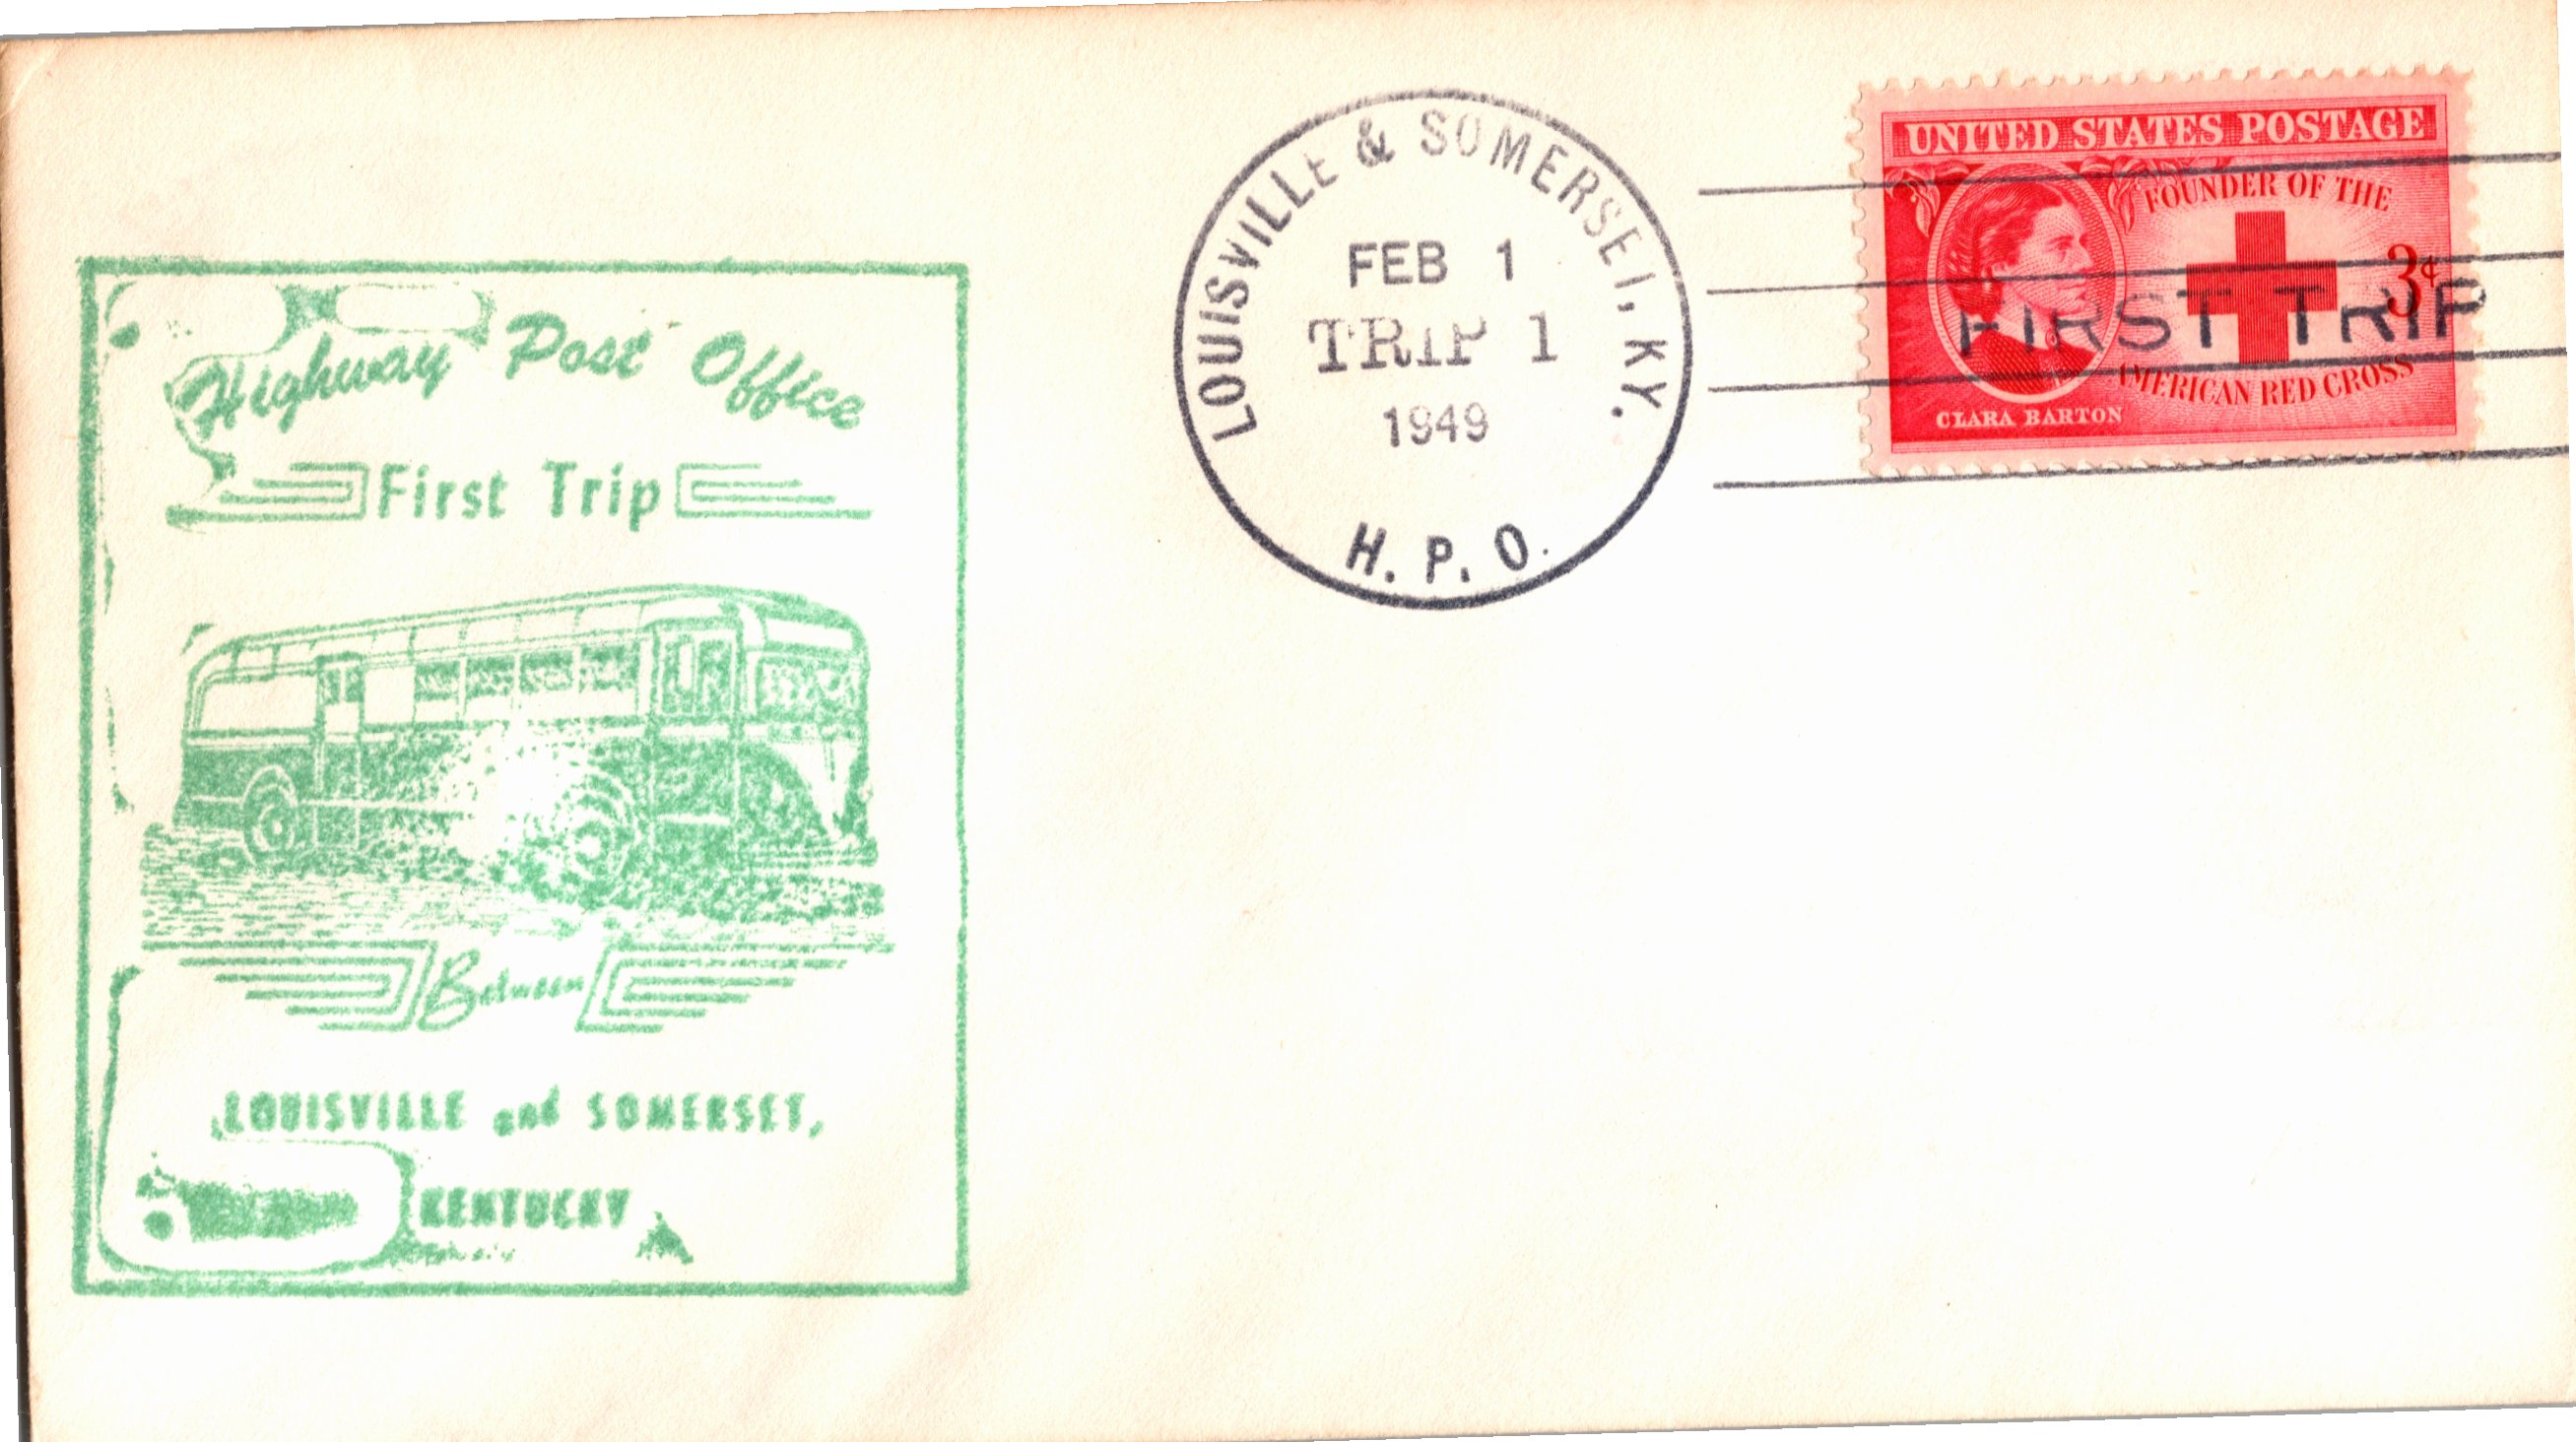 Highway Post Office
First Trip
Between
LOUISVILLE and SOMERSET,
KENTUCKY
LOUISVILLE & SOMERSET, KY.
FEB 1
TRIP 1
1949
H. P. O.
UNITED STATES POSTAGE
FOUNDER OF THE
3¢
FIRST TRIP
AMERICAN RED CROSS
CLARA BARTON